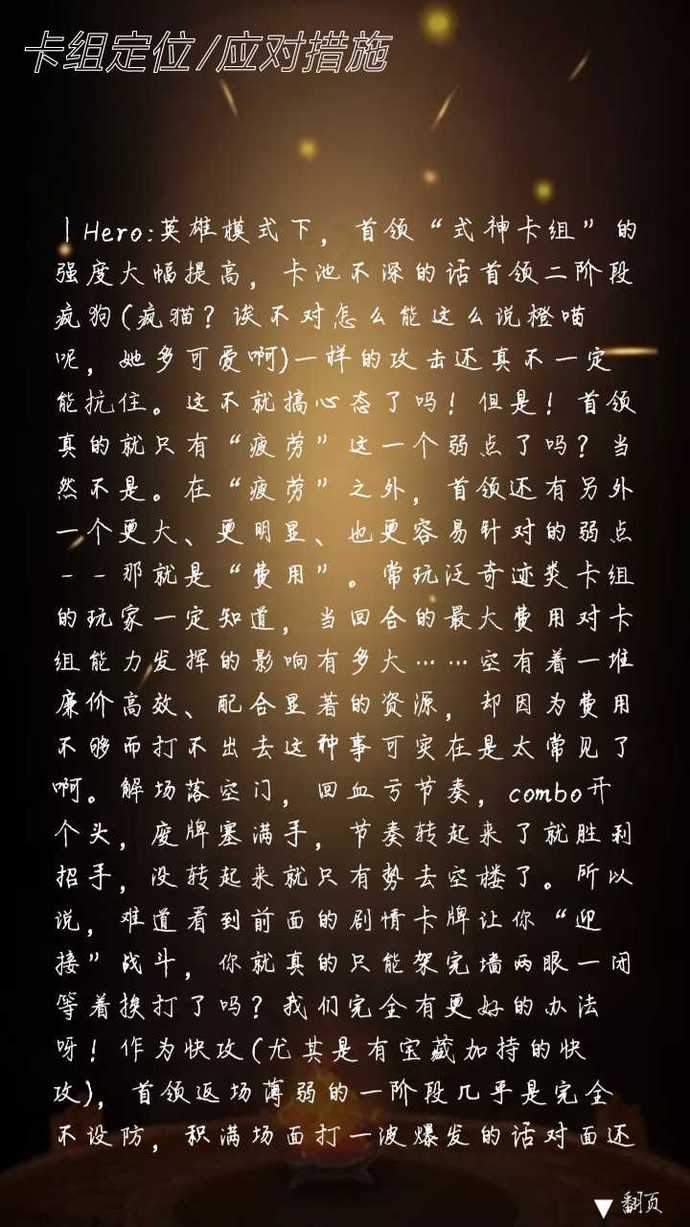 卡组定位/应对措施
|Hero:英雄模式下，首领“式神卡组”的
强度大幅提高，卡池不深的话首领二阶段
疯狗(疯猫？诶不对怎么能这么说橙喵
呢，她多可爱啊)一样的攻击还真不一定
能抗住。这不就搞心态了吗！但是！首领
真的就只有“疲劳”这一个弱点了吗？当
然不是。在“疲劳”之外，首领还有另外
一个更大、更明显、也更容易针对的弱点
--那就是“费用”。常玩泛奇迹类卡组
的玩家一定知道，当回合的最大费用对卡
组能力发挥的影响有多大……空有着一堆
廉价高效、配合显著的资源，却因为费用
不够而打不出去这种事可实在是太常见了
啊。解场落空门，回血亏节奏，combo开
个头，废牌塞满手，节奏转起来了就胜利
招手，没转起来就只有势去空楼了。所以
说，难道看到前面的剧情卡牌让你“迎
接”战斗，你就真的只能架完墙两眼一闭
等着挨打了吗？我们完全有更好的办法
呀！作为快攻(尤其是有宝藏加持的快
攻)，首领返场薄弱的一阶段几乎是完全
不设防，积满场面打一波爆发的话对面还
▼翻页